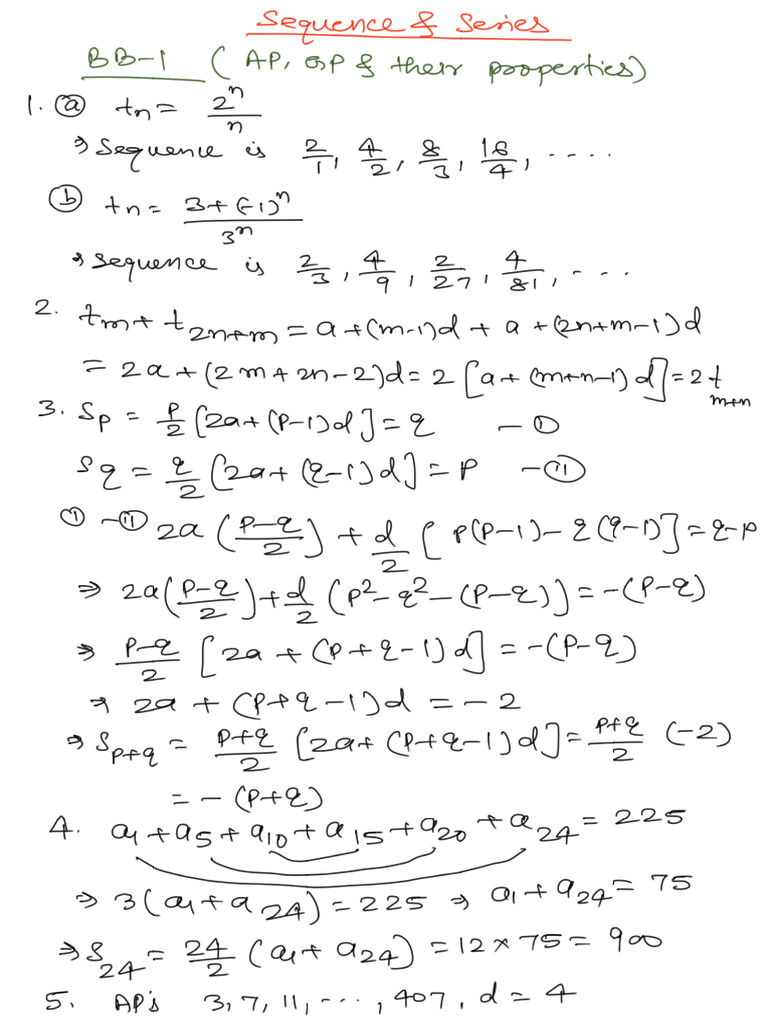 Sequence & Series
BB-1 (AP, GP & their properties)
1. ⓐ tn = 2^n/n
⇒ Sequence is 2/1, 4/2, 8/3, 16/4, ....
ⓑ tn = (3+(-1)^n)/3^n
⇒ Sequence is 2/3, 4/9, 2/27, 4/81, ....
2. tm + t2n+m = a+(m-1)d + a+(2n+m-1)d
= 2a+(2m+2n-2)d = 2[a+(m+n-1)d] = 2tm+n
3. Sp = p/2 [2a+(p-1)d] = q — Ⓘ
Sq = q/2 [2a+(q-1)d] = p — Ⓘⓘ
Ⓘ - Ⓘⓘ 2a((p-q)/2) + d/2 [p(p-1) - q(q-1)] = q-p
⇒ 2a((p-q)/2) + d/2 (p²-q²-(p-q)) = -(p-q)
⇒ (p-q)/2 [2a+(p+q-1)d] = -(p-q)
⇒ 2a+(p+q-1)d = -2
⇒ Sp+q = (p+q)/2 [2a+(p+q-1)d] = (p+q)/2 (-2)
= -(p+q)
4. a1+a5+a10+a15+a20+a24 = 225
⇒ 3(a1+a24) = 225 ⇒ a1+a24 = 75
⇒ S24 = 24/2 (a1+a24) = 12×75 = 900
5. AP's 3, 7, 11, ..., 407, d = 4